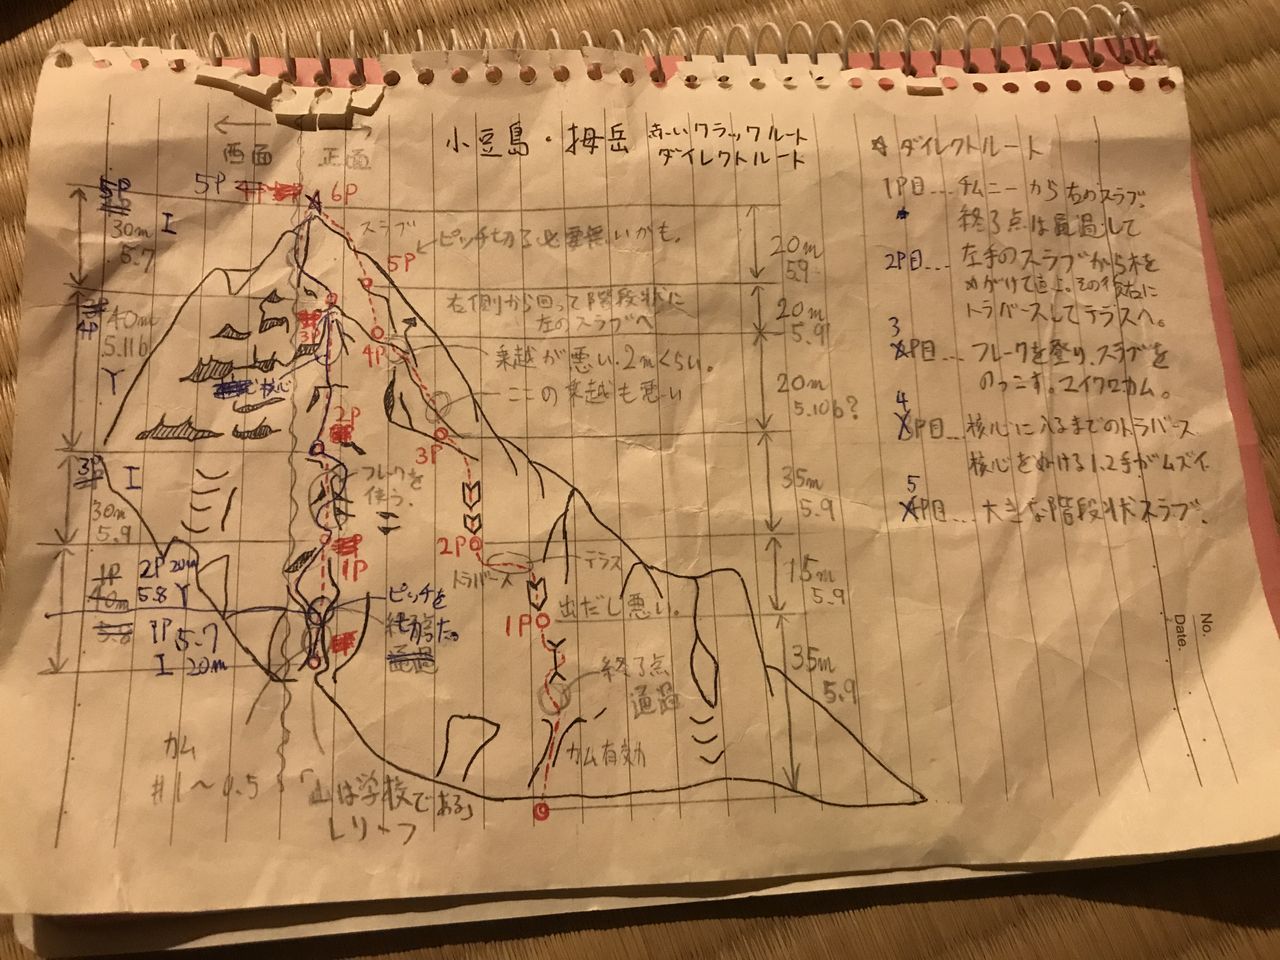 小豆島・拇岳 赤いクラックルート
ダイレクトルート
西面
正面
5P
6P
5P
30m
I
5.7
スラブ
ピッチ切る必要無いかも。
5P
右側から回って階段状に
左のスラブへ
4P
40m
5.11b
Y
3P
4P
乗越が悪い。2mくらい。
核心
ここの乗越も悪い
2P
3P
3P
I
30m
5.9
フレークを
使う。
2P
トラバース
テラス
1P
1P
40m
5.8
2P 20m
5.8 Y
1P 5.7
I 20m
ピッチを
切った。
出だし悪い。
1P
終了点
通過
カム有効
カム
#1〜0.5
「山は学校である」
レリーフ
20m
5.9
20m
5.9
20m
5.10b?
35m
5.9
15m
5.9
35m
5.9
ダイレクトルート
1P目…チムニーから右のスラブ。
終了点は通過して
2P目…左手のスラブから木を
めがけて直上。その後右に
トラバースしてテラスへ。
3P目…フレークを登り、スラブを
のっこす。マイクロカム。
4P目…核心に入るまでのトラバース
核心をぬける1,2手がムズイ
5P目…大きな階段状スラブ。
No.
Date.